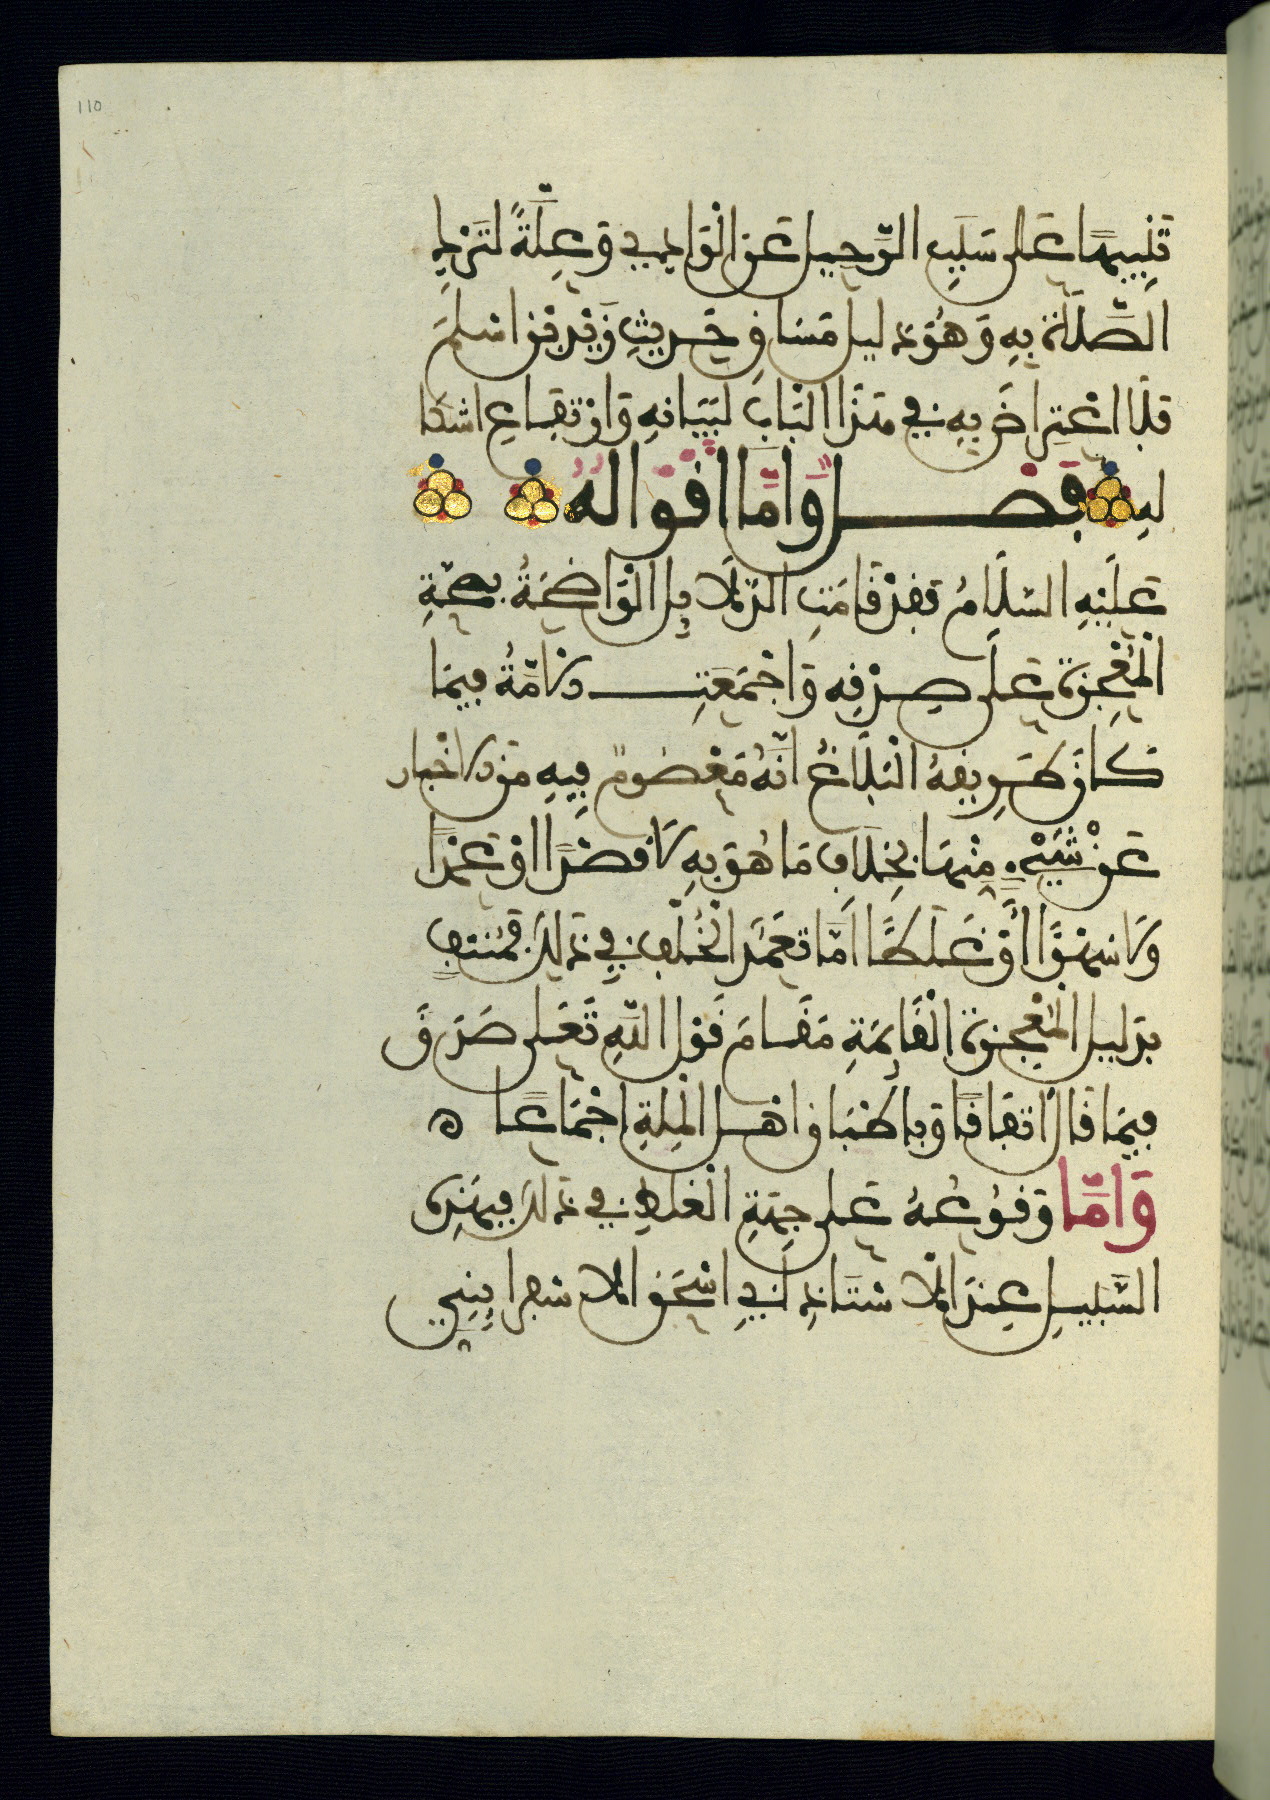 110
تَنْبِيهًا عَلَى سَبَبِ الرَّحِيلِ عَنِ الْوَادِي وَعِلَّةً لِتَرْكِ
الصَّلَاةِ بِهِ وَهُوَ دليل مَسَاقِ حَدِيثِ زَيْدِ بْنِ اسْلَمَ
فَلَا اعْتِرَاضَ بِهِ فِي هَذَا الْبَابِ لِبَيَانِهِ وَارْتِفَاعِ اشكا
لهِ فَصْل وَأَمَّا أَقْوَالُهُ
عَلَيْهِ السَّلَامُ فَقَدْ قَامَتِ الدَّلَائِلُ الْوَاضِحَةُ بِصِحَّةِ
الْمُعْجِزَةِ عَلَى صِدْقِهِ وَاجْمَعَتِ الامَّةُ فِيمَا
كَانَ طَرِيقُهُ الْبَلَاغُ أَنَّهُ مَعْصُومٌ فِيهِ مِنَ الاخْبَارِ
عَنْ شَيْءٍ مِنْهَا بِخِلَافِ مَا هُوَ بِهِ لَا قَصْدًا اوْ عَمْدًا
وَلَا سَهْوًا أَوْ غَلَطًا أَمَّا تَعَمُّدُ الْخُلْفِ فِي ذَلِكَ فَمُنْتَفٍ
بِدَلِيلِ الْمُعْجِزَةِ الْقَائِمَةِ مَقَامَ قَوْلِ اللَّهِ تَعَلَى صَدَقَ
فِيمَا قَالَ اتِّفَاقًا وَبِإِطْبَاقِ اهْلِ الْمِلَّةِ اجْمَاعًا ه
وَأَمَّا وُقُوعُهُ عَلَى جِهَةِ الْغَلَطِ فِي ذَلِكَ فَبِهَذِهِ
السَّبِيلِ عِنْدَ الْأُسْتَاذِ أَبِي اسْحَقَ الاسْفِرَايِنِيِّ